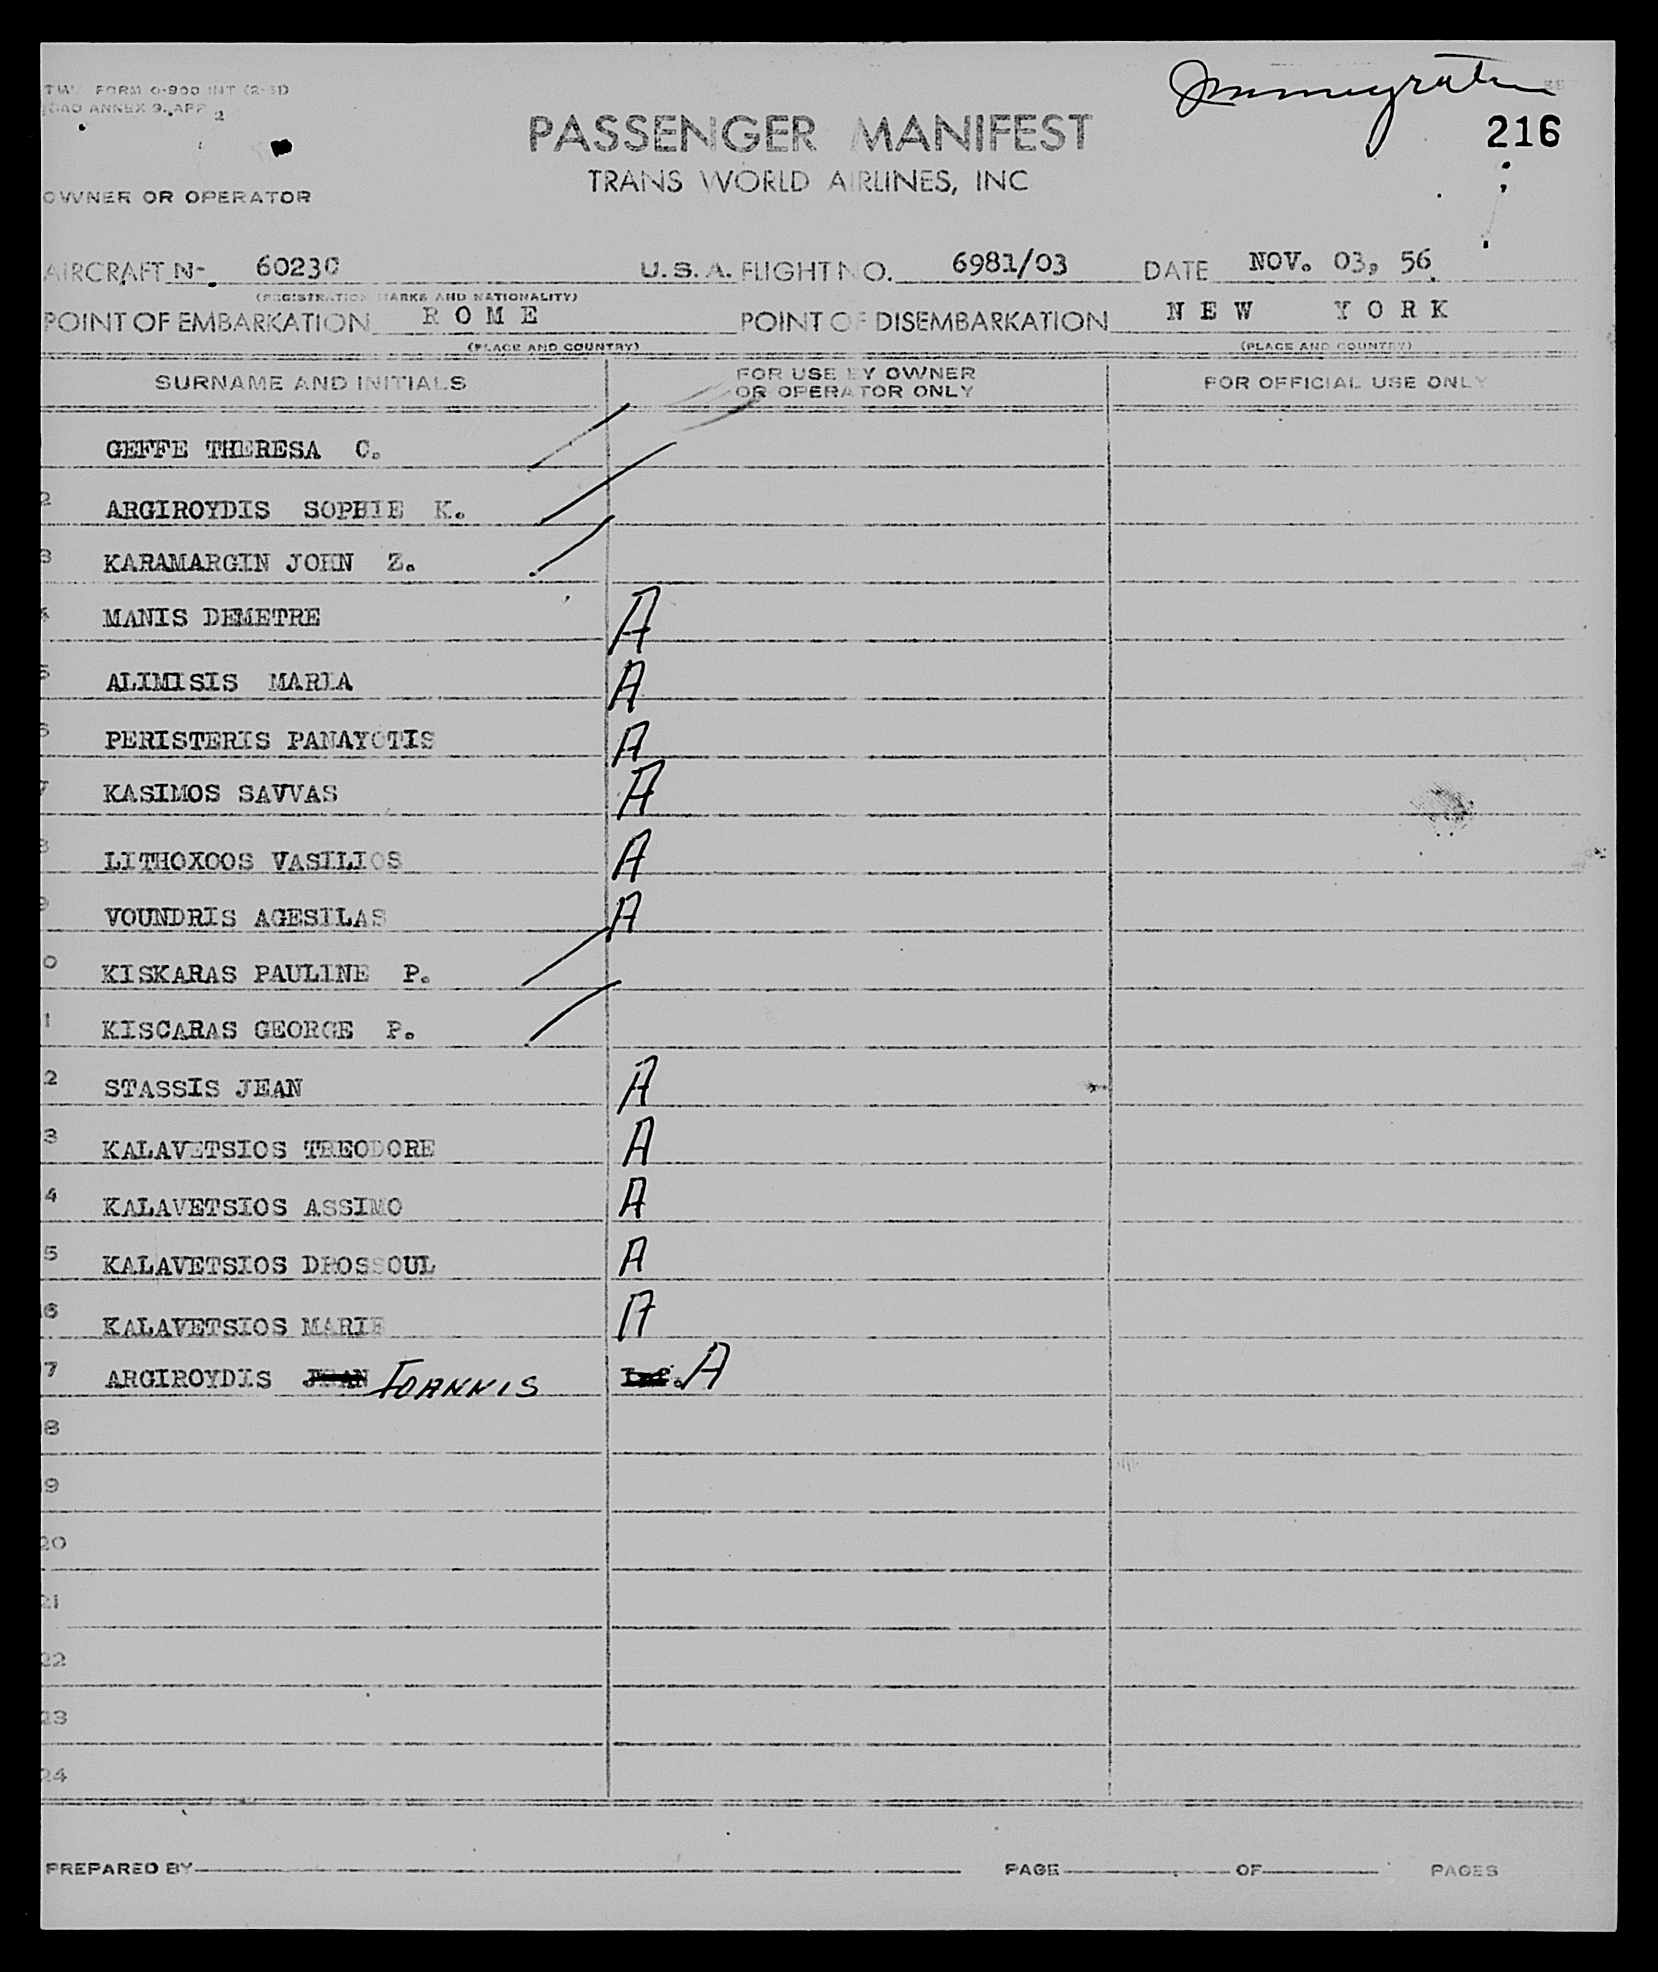 Immigration
TWA FORM O-900 INT (2-51)
ICAO ANNEX 9, APP 2
216
PASSENGER MANIFEST
TRANS WORLD AIRLINES, INC
OWNER OR OPERATOR
AIRCRAFT N- 60230 U.S.A. FLIGHT NO. 6981/03 DATE NOV. 03, 56
(REGISTRATION MARKS AND NATIONALITY)
POINT OF EMBARKATION ROME POINT OF DISEMBARKATION NEW YORK
(PLACE AND COUNTRY) (PLACE AND COUNTRY)
SURNAME AND INITIALS FOR USE BY OWNER OR OPERATOR ONLY FOR OFFICIAL USE ONLY
GEFFE THERESA C.
2 ARGIROYDIS SOPHIE K.
3 KARAMARGIN JOHN Z.
4 MANIS DEMETRE A
5 ALIMISIS MARIA A
6 PERISTERIS PANAYOTIS A
7 KASIMOS SAVVAS A
8 LITHOXOOS VASILIOS A
9 VOUNDRIS AGESILAS A
0 KISKARAS PAULINE P.
1 KISCARAS GEORGE P.
2 STASSIS JEAN A
3 KALAVETSIOS THEODORE A
4 KALAVETSIOS ASSIMO A
5 KALAVETSIOS DROSSOUL A
6 KALAVETSIOS MARIE A
7 ARGIROYDIS JEAN IOANNIS A
8
9
20
21
22
23
24
PREPARED BY PAGE OF PAGES